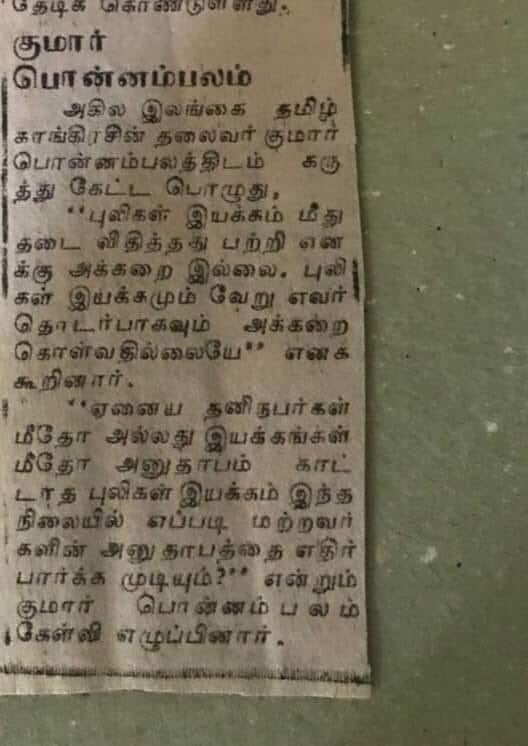 தேடிக் கொண்டுள்ளது.
குமார்
பொன்னம்பலம்
அகில இலங்கை தமிழ்
காங்கிரசின் தலைவர் குமார்
பொன்னம்பலத்திடம் கரு
த்து கேட்ட பொழுது,
‘‘புலிகள் இயக்கம் மீது
தடை விதித்தது பற்றி என
க்கு அக்கறை இல்லை. புலி
கள் இயக்கமும் வேறு எவர்
தொடர்பாகவும் அக்கறை
கொள்வதில்லையே’’ எனக்
கூறினார்.
‘‘ஏனைய தனிநபர்கள்
மீதோ அல்லது இயக்கங்கள்
மீதோ அனுதாபம் காட்
டாத புலிகள் இயக்கம் இந்த
நிலையில் எப்படி மற்றவர்
களின் அனுதாபத்தை எதிர்
பார்க்க முடியும்?’’ என்றும்
குமார் பொன்னம்பலம்
கேள்வி எழுப்பினார்.